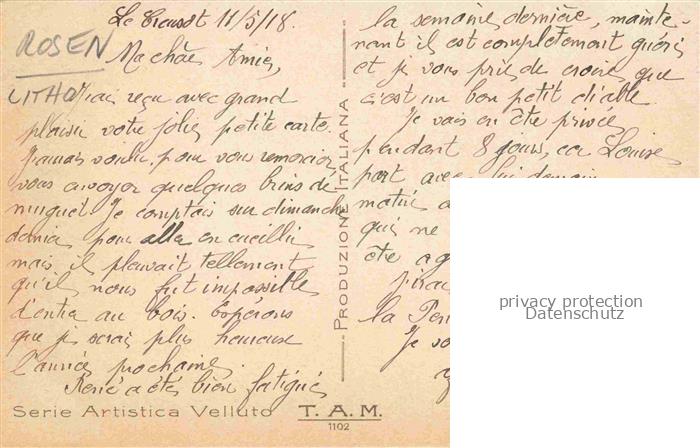 Le Creusot 11/5/18.
ROSEN
Ma chère Amie,
LITHO
J'ai reçu avec grand
plaisir votre jolie petite carte.
J'aurais voulu, pour vous remercier,
vous envoyer quelques brins de
muguet. Je comptais sur dimanche
dernier pour aller en cueillir
mais il pleuvait tellement
qu'il nous fut impossible
d'entrer au bois. Espérons
que je serai plus heureuse
l'année prochaine.
René a été bien fatigué
la semaine dernière, mainte-
nant il est complètement guéri
et je vous prie de croire que
c'est un bon petit diable.
Je vais en être privée
pendant 8 jours, car Louise
part avec lui demain
matin
qui ne
être
la
Je
PRODUZIONE ITALIANA
Serie Artistica Velluto
T. A. M.
1102
privacy protection
Datenschutz